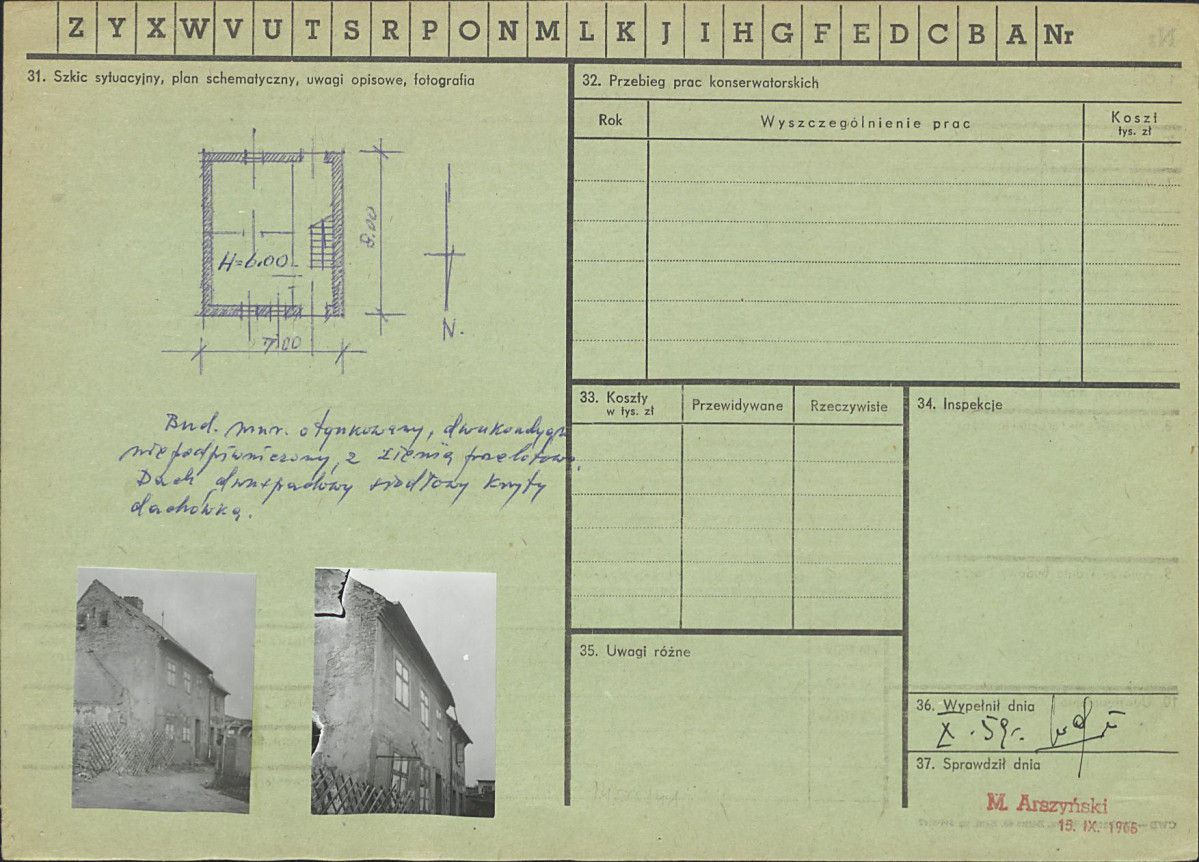 Z Y X W V U T S R P O N M L K J I H G F E D C B A Nr
31. Szkic sytuacyjny, plan schematyczny, uwagi opisowe, fotografia
H=6.00
8.00
7.00
N.
Bud. mur. otynkowany, dwukondygn
niepodpiwniczony, z sienią przelotową.
Dach dwuspadowy siodłowy kryty
dachówką.
32. Przebieg prac konserwatorskich
Rok
Wyszczególnienie prac
Koszt
tys. zł
33. Koszty
w tys. zł
Przewidywane
Rzeczywiste
34. Inspekcje
35. Uwagi różne
36. Wypełnił dnia
X. 59r.
37. Sprawdził dnia
M. Arszyński
15. IX. 1966